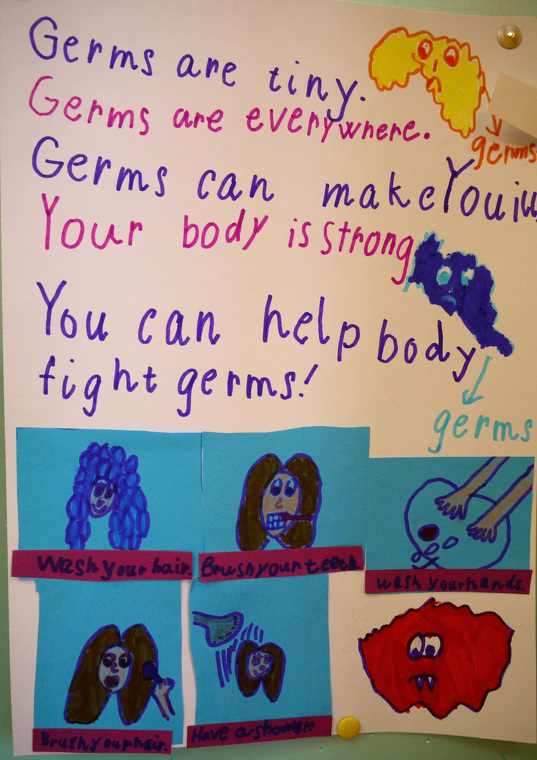 Germs are tiny.
Germs are everywhere.
germs
Germs can make You
Your body is strong
You can help body
fight germs!
germs
Wash your hair.
Brush your teeth.
wash your hands.
Brush your hair.
Have a shower.